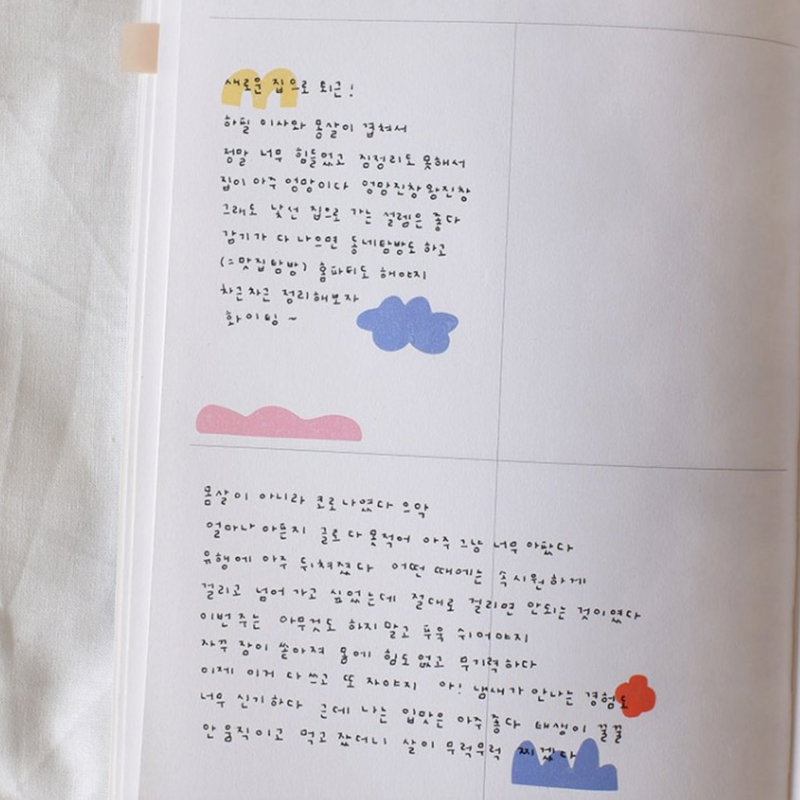 새로운 집으로 퇴근!
하필 이사와 몸살이 겹쳐서
정말 너무 힘들었고 짐정리도 못해서
집이 아주 엉망이다 엉망진창왕진창
그래도 낯선 집으로 가는 설렘은 좋다
감기가 다 나으면 동네탐방도 하고
(=맛집탐방) 홈파티도 해야지
차근차근 정리해보자
화이팅~
몸살이 아니라 코로나였다 으악
얼마나 아픈지 글로 다 못적어 아주 그냥 너무 아팠다
유행에 아주 뒤쳐졌다 어떤 때에는 속시원하게
걸리고 넘어가고 싶었는데 절대로 걸리면 안되는 것이였다
이번주는 아무것도 하지말고 푸욱 쉬어야지
자꾸 잠이 쏟아져 몸에 힘도 없고 무기력하다
이제 이거 다쓰고 또 자야지 아! 냄새가 안나는 경험도
너무 신기하다 근데 나는 입맛은 아주 좋다 태생이 꿀꿀
안움직이고 먹고 잤더니 살이 무럭무럭 찌겠다